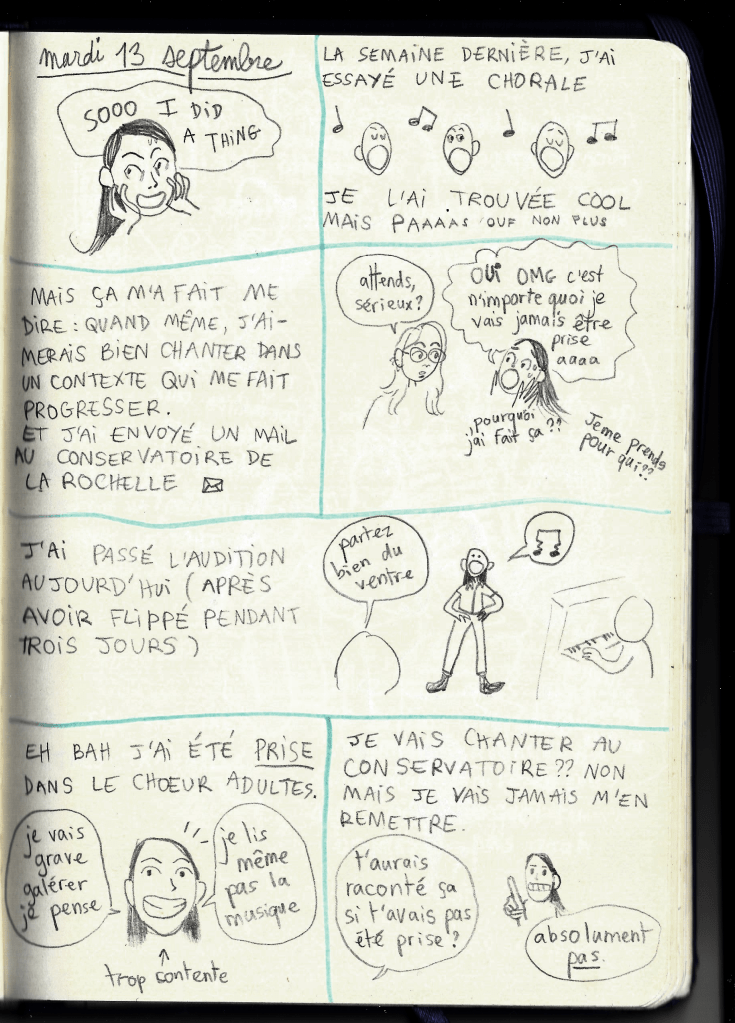 mardi 13 septembre
SOOO I DID
A THING
LA SEMAINE DERNIÈRE, J'AI
ESSAYÉ UNE CHORALE
JE L'AI TROUVÉE COOL
MAIS PAAAAS OUF NON PLUS
MAIS ÇA M'A FAIT ME
DIRE : QUAND MÊME, J'AI-
MERAIS BIEN CHANTER DANS
UN CONTEXTE QUI ME FAIT
PROGRESSER.
ET J'AI ENVOYÉ UN MAIL
AU CONSERVATOIRE DE
LA ROCHELLE
attends,
sérieux?
OUI OMG c'est
n'importe quoi je
vais jamais être
prise
aaaa
pourquoi
j'ai fait ça ??
Je me prends
pour qui??
J'AI PASSÉ L'AUDITION
AUJOURD'HUI (APRÈS
AVOIR FLIPPÉ PENDANT
TROIS JOURS)
partez
bien du
ventre
EH BAH J'AI ÉTÉ PRISE
DANS LE CHOEUR ADULTES.
je vais
grave
galérer
je pense
je lis
même
pas la
musique
trop contente
JE VAIS CHANTER AU
CONSERVATOIRE?? NON
MAIS JE VAIS JAMAIS M'EN
REMETTRE.
t'aurais
raconté ça
si t'avais pas
été prise?
absolument
pas.